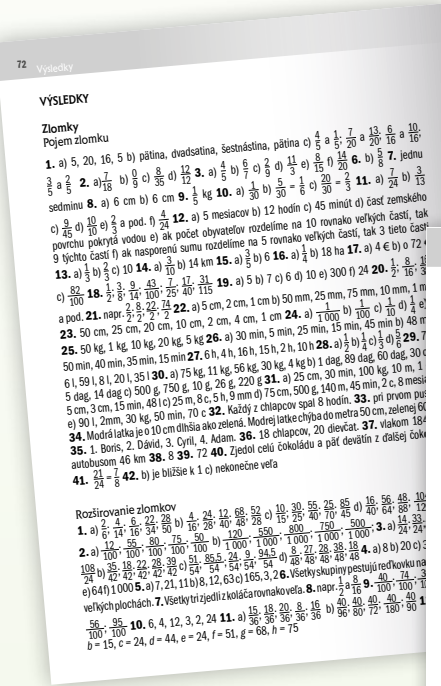 72 Výsledky
VÝSLEDKY
Zlomky
Pojem zlomku
1. a) 5, 20, 16, 5 b) pätina, dvadsatina, šestnástina, pätina c) 4/5 a 1/5; 7/20 a 13/20; 6/16 a 10/16;
3/5 a 2/5 2. a) 7/18 b) 0/9 c) 8/35 d) 12/12 3. a) 4/5 b) 6/7 c) 2/9 d) 11/3 e) 8/15 f) 14/20 6. b) 5/8 7. jednu
sedminu 8. a) 6 cm b) 6 cm 9. 1/5 kg 10. a) 1/30 b) 5/30 = 1/6 c) 20/30 = 2/3 11. a) 7/24 b) 3/13
c) 9/45 d) 10/10 e) 2/3 a pod. f) 4/24 12. a) 5 mesiacov b) 12 hodín c) 45 minút d) časť zemského
povrchu pokrytá vodou e) ak počet obyvateľov rozdelíme na 10 rovnako veľkých častí, tak
9 týchto častí f) ak nasporenú sumu rozdelíme na 5 rovnako veľkých častí, tak 3 tieto časti
13. a) 1/3 b) 2/3 c) 10 14. a) 3/10 b) 14 km 15. a) 3/5 b) 6 16. a) 1/4 b) 18 ha 17. a) 4 € b) o 72
c) 82/100 18. 1/2; 3/8; 9/14; 43/100; 7/25; 17/40; 31/115 19. a) 5 b) 7 c) 6 d) 10 e) 300 f) 24 20. 1/2; 8/16;
a pod. 21. napr. 2/2; 8/2; 22/2; 74/2 22. a) 5 cm, 2 cm, 1 cm b) 50 mm, 25 mm, 75 mm, 10 mm, 1 m
23. 50 cm, 25 cm, 20 cm, 10 cm, 2 cm, 4 cm, 1 cm 24. a) 1/1 000 b) 1/100 c) 1/10 d) 1/4 e)
25. 50 kg, 1 kg, 10 kg, 20 kg, 5 kg 26. a) 30 min, 5 min, 25 min, 15 min, 45 min b) 48 m
50 min, 40 min, 35 min, 15 min 27. 6 h, 4 h, 16 h, 15 h, 2 h, 10 h 28. a) 1/2 b) 1/4 c) 1/3 d) 5/6 29. 7
6 l, 59 l, 8 l, 20 l, 35 l 30. a) 75 kg, 11 kg, 56 kg, 30 kg, 4 kg b) 1 dag, 89 dag, 60 dag, 30 d
5 dag, 14 dag c) 500 g, 750 g, 10 g, 26 g, 220 g 31. a) 25 cm, 30 min, 100 kg, 10 m, 1
5 cm, 3 cm, 15 min, 48 l c) 25 m, 8 c, 5 h, 9 mm d) 75 cm, 500 g, 140 m, 45 min, 2 c, 8 mesia
e) 90 l, 2mm, 30 kg, 50 min, 70 c 32. Každý z chlapcov spal 8 hodín. 33. pri prvom pu
34. Modrá latka je o 10 cm dlhšia ako zelená. Modrej latke chýba do metra 50 cm, zelenej 60
35. 1. Boris, 2. Dávid, 3. Cyril, 4. Adam. 36. 18 chlapcov, 20 dievčat. 37. vlakom 184
autobusom 46 km 38. 8 39. 72 40. Zjedol celú čokoládu a päť devätín z ďalšej čoko
41. 21/24 = 7/8 42. b) je bližšie k 1 c) nekonečne veľa
Rozširovanie zlomkov
1. a) 2/6; 4/14; 6/16; 22/34; 28/50 b) 4/16; 24/28; 12/40; 68/48; 52/28 c) 10/15; 30/25; 55/40; 25/70; 85/45 d) 16/40; 56/64; 48/88;
2. a) 12/100; 55/100; 80/100; 75/100; 50/100 b) 120/1 000; 550/1 000; 800/1 000; 750/1 000; 500/1 000 3. a) 14/24; 33/24;
108/24 b) 35/42; 18/42; 22/42; 28/42; 39/42 c) 51/54; 85,5/54; 24/54; 9/54; 94,5/54 d) 8/48; 27/48; 28/48; 38/48; 18/48 4. a) 8 b) 20 c) 3
e) 64 f) 1 000 5. a) 7, 21, 11 b) 8, 12, 63 c) 165, 3, 2 6. Všetky skupiny pestujú reďkovku na
veľkých plochách. 7. Všetky tri zjedli z koláča rovnako veľa. 8. napr. 1/2 a 8/16 9. 40/100; 74/100;
56/100; 95/100 10. 6, 4, 12, 3, 2, 24 11. a) 15/36; 18/36; 20/36; 8/36; 16/36 b) 40/96; 40/80; 40/72; 40/180; 40/90
b = 15, c = 24, d = 44, e = 24, f = 51, g = 68, h = 75